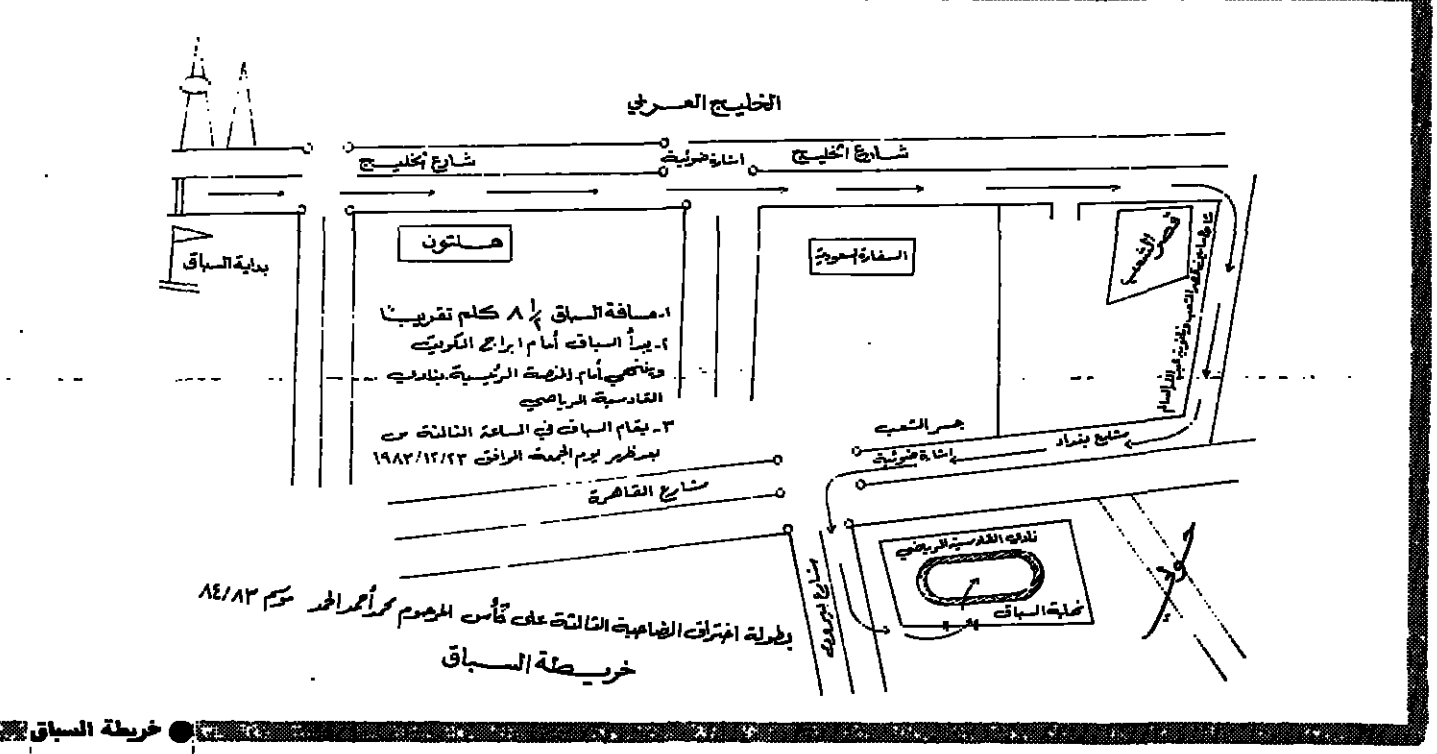 الخليج العربي
شارع الخليج
اشارة ضوئية
شارع الخليج
هلتون
السفارة السعودية
قصر الشعب
بداية السباق
١- مسافة السباق ٨ ١/٢ كلم تقريبا
٢- يبدأ السباق أمام ابراج الكويت
وينتهي أمام المنصة الرئيسية بنادي
القادسية الرياضي
٣- يقام السباق في الساعة الثالثة من
بعد ظهر يوم الجمعة الموافق ١٩٨٣/١٢/٢٣
جسر الشعب
اشارة ضوئية
شارع بغداد
شارع القاهرة
نادي القادسية الرياضي
نهاية السباق
بطولة اختراق الضاحية الثالثة على كأس المرحوم محمد أحمد الحمد موسم ٨٤/٨٣
خريطة السباق
خريطة السباق